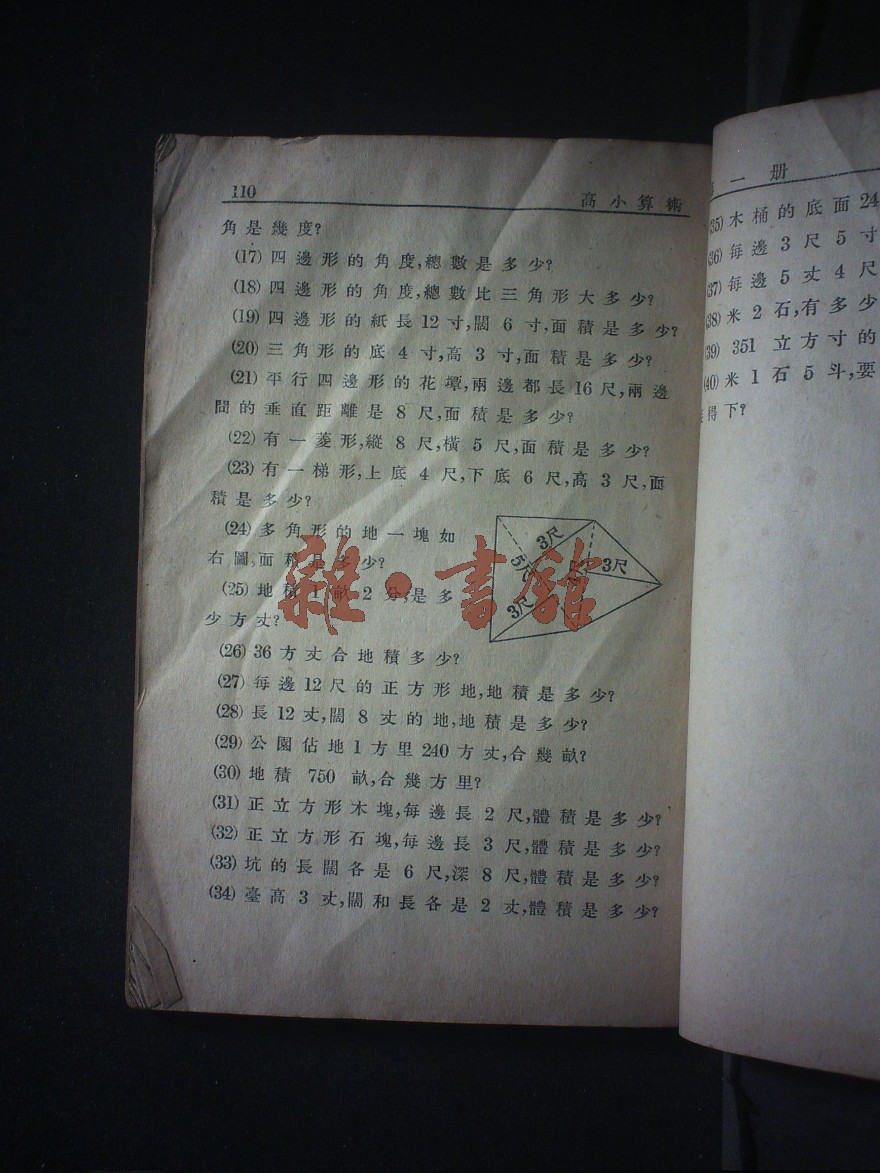 110
高小算術
角是幾度?
(17) 四邊形的角度,總數是多少?
(18) 四邊形的角度,總數比三角形大多少?
(19) 四邊形的紙長12寸,闊6寸,面積是多少?
(20) 三角形的底4寸,高3寸,面積是多少?
(21) 平行四邊形的花壇,兩邊都長16尺,兩邊
間的垂直距離是8尺,面積是多少?
(22) 有一菱形,縱8尺,橫5尺,面積是多少?
(23) 有一梯形,上底4尺,下底6尺,高3尺,面
積是多少?
(24) 多角形的地一塊如
右圖,面積是多少?
(25) 地積1畝2分,是多
少方丈?
3尺
5尺
3尺
3尺
(26) 36方丈合地積多少?
(27) 每邊12尺的正方形地,地積是多少?
(28) 長12丈,闊8丈的地,地積是多少?
(29) 公園佔地1方里240方丈,合幾畝?
(30) 地積750畝,合幾方里?
(31) 正立方形木塊,每邊長2尺,體積是多少?
(32) 正立方形石塊,每邊長3尺,體積是多少?
(33) 坑的長闊各是6尺,深8尺,體積是多少?
(34) 臺高3丈,闊和長各是2丈,體積是多少?
雜·書館
一册
(35) 木桶的底面24
(36) 每邊3尺5寸
(37) 每邊5丈4尺
(38) 米2石,有多少
(39) 351立方寸的
(40) 米1石5斗,要
得下?